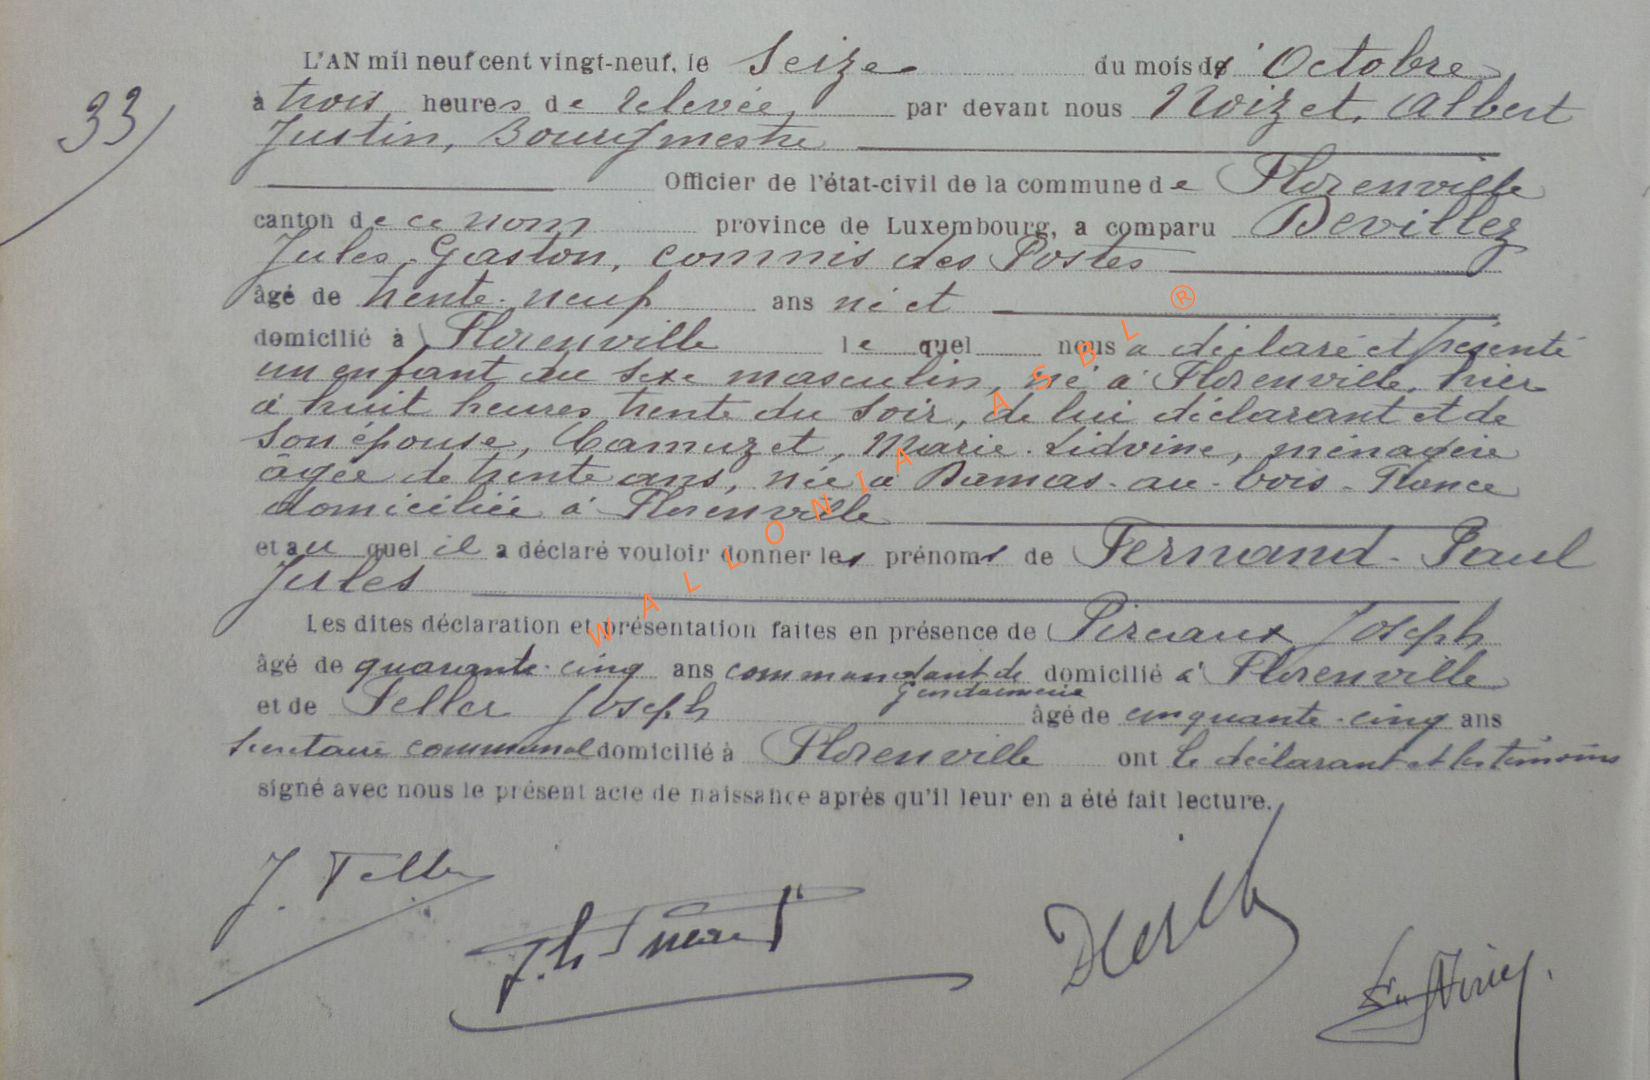 33
L'AN mil neuf cent vingt-neuf, le Seize du mois d' Octobre
à trois heures de relevée par devant nous Noizet, Albert
Justin, Bourgmestre
Officier de l'état-civil de la commune de Florenville
canton de ce nom province de Luxembourg, a comparu Devillez
Jules, Gaston, commis des Postes
âgé de trente-neuf ans né et
domicilié à Florenville le quel nous a déclaré et présenté
un enfant du sexe masculin, né à Florenville, hier
à huit heures trente du soir, de lui déclarant et de
son épouse, Camuzet, Marie-Lidvine, ménagère
âgée de trente ans, née à Damas-au-bois-France
domiciliée à Florenville
et au quel il a déclaré vouloir donner les prénoms de Fernand-Paul
Jules
Les dites déclaration et présentation faites en présence de Pireaux Joseph
âgé de quarante-cinq ans commandant de gendarmerie domicilié à Florenville
et de Feller Joseph âgé de cinquante-cinq ans
secrétaire communal domicilié à Florenville ont le déclarant et les témoins
signé avec nous le présent acte de naissance après qu'il leur en a été fait lecture.
J. Feller
WALLONIA ASBL ®